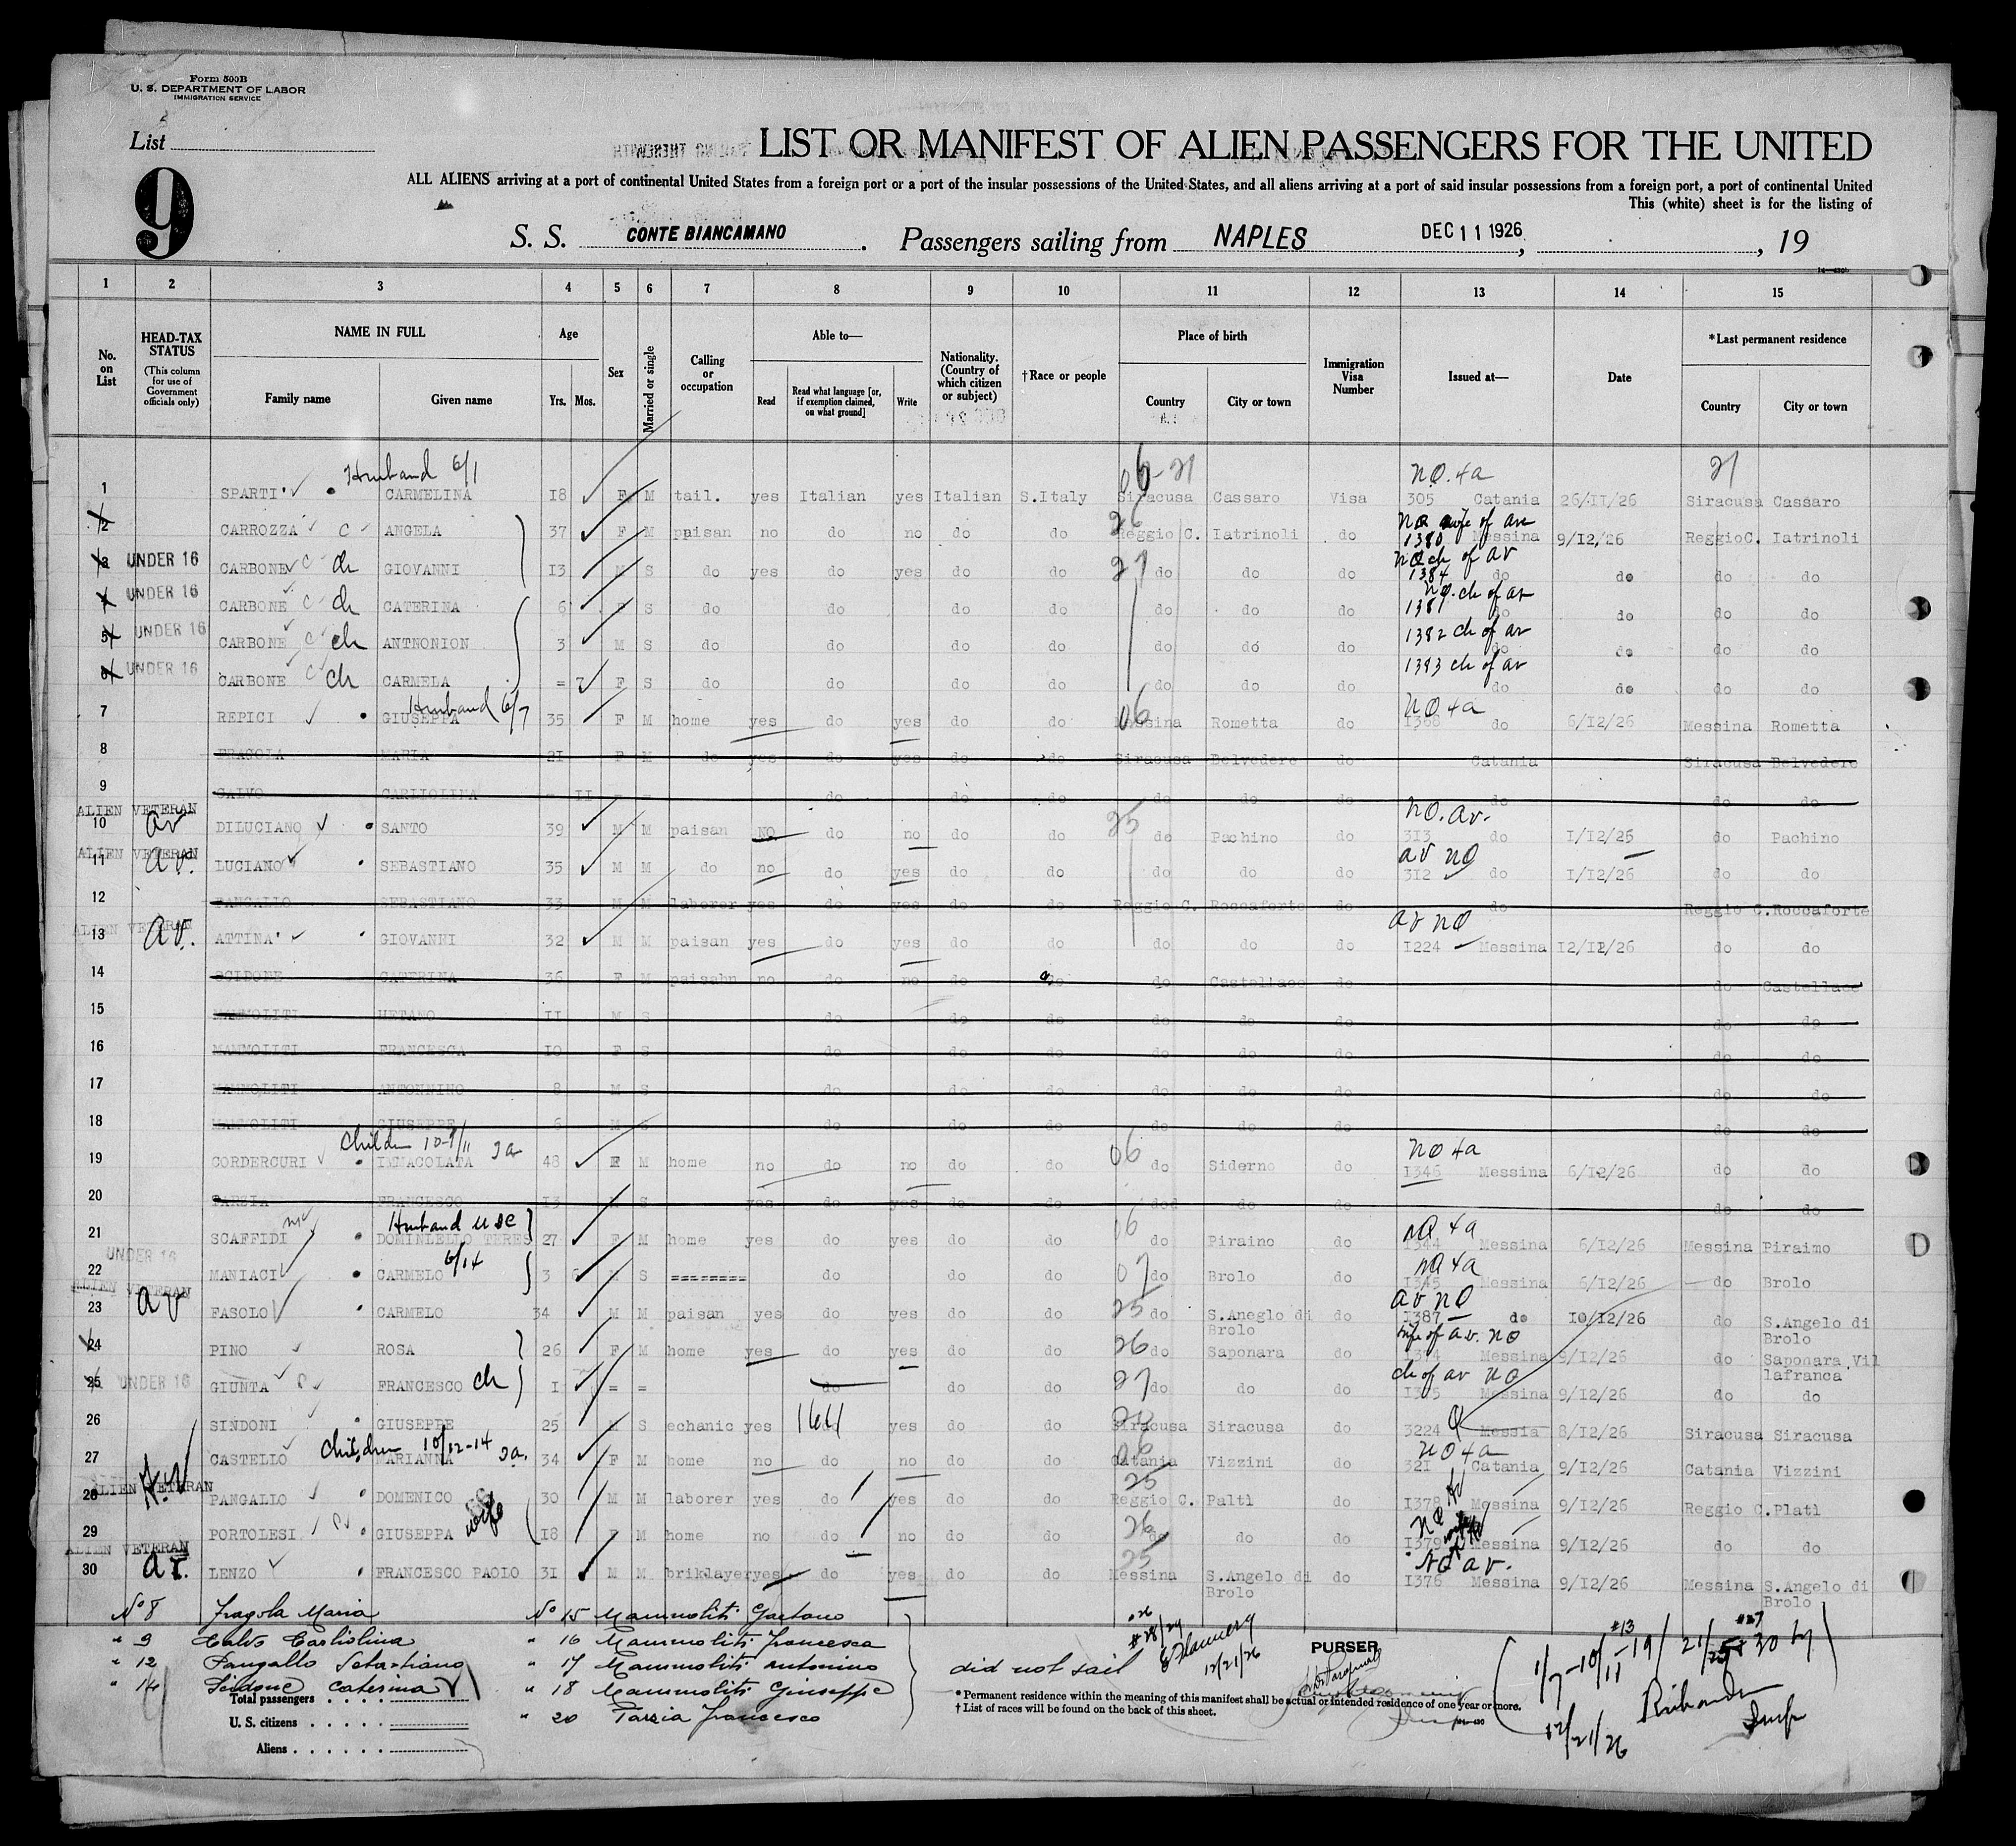 Form 500B
U. S. DEPARTMENT OF LABOR
IMMIGRATION SERVICE
List
9
LIST OR MANIFEST OF ALIEN PASSENGERS FOR THE UNITED
ALL ALIENS arriving at a port of continental United States from a foreign port or a port of the insular possessions of the United States, and all aliens arriving at a port of said insular possessions from a foreign port, a port of continental United
This (white) sheet is for the listing of
S. S. CONTE BIANCAMANO . Passengers sailing from NAPLES DEC 11 1926 , , 19
1 2 3 4 5 6 7 8 9 10 11 12 13 14 15
No. on List
HEAD-TAX STATUS (This column for use of Government officials only)
NAME IN FULL
Family name Given name
Age
Yrs. Mos.
Sex
Married or single
Calling or occupation
Able to—
Read Read what language [or, if exemption claimed, on what ground] Write
Nationality. (Country of which citizen or subject)
†Race or people
Place of birth
Country City or town
Immigration Visa Number
Issued at—
Date
*Last permanent residence
Country City or town
Husband 6/1 06-21 NO. 4a 21
1 SPARTI' CARMELINA 18 F M tail. yes Italian yes Italian S.Italy Siracusa Cassaro Visa 305 Catania 26/11/26 Siracusa Cassaro
26 wife of av
2 CARROZZA C ANGELA 37 F M paisan no do no do do Reggio C. Iatrinoli do 1380 Messina 9/12/26 ReggioC. Iatrinoli
27 ch of av
3 UNDER 16 CARBONE C ch GIOVANNI 13 M S do yes do yes do do do do do 1384 do do do do
NO. ch of av
4 UNDER 16 CARBONE C ch CATERINA 6 F S do do do do do do do 1381 do do do do
5 UNDER 16 CARBONE C ch ANTNONION 3 M S do do do do do do do 1382 ch of av do do do do
6 UNDER 16 CARBONE C ch CARMELA = 7 F S do do do do do do do 1383 ch of av do do do do
Husband 6/7 06 NO 4a
7 REPICI GIUSEPPA 35 F M home yes do yes do do Messina Rometta do 1368 do 6/12/26 Messina Rometta
8 FRAGOLA MARIA 21 F M do yes do yes do do Siracusa Belvedere do Catania Siracusa Belvedere
9 CALVO CARLIOLINA = 11 = = do do do do do do do do do
ALIEN VETERAN av 25 NO. av.
10 DILUCIANO SANTO 39 M M paisan NO do no do do do Pachino do 313 do 1/12/26 do Pachino
ALIEN VETERAN av. av NO
11 LUCIANO SEBASTIANO 35 M M do no do yes do do do do do 312 do 1/12/26 do do
12 PANGALLO SEBASTIANO 33 M M laborer yes do yes do do Reggio C. Roccaforte do do Reggio C.Roccaforte
ALIEN VETERAN av. av NO
13 ATTINA' GIOVANNI 32 M M paisan yes do yes do do do do do 1224 Messina 12/12/26 do do
14 SCIDONE CATERINA 36 F M paisahn no do no do do do Castellace do do Castellace
15 MAMMOLITI 11 M S do do do do do do do do
16 MAMMOLITI FRANCESCA 10 F S do do do do do do do do
17 MAMMOLITI ANTONNINO 8 M S do do do do do do do do
18 MAMMOLITI GIUSEPPE 6 M S do do do do do do do do
Children 06 NO 4a
19 CORDERCURI IMMACOLATA 48 F M home no do no do do do Siderno do 1346 Messina 6/12/26 do do
20 TARZIA FRANCESCO 13 S yes do yes do do do do do do
Husband USC 06 NO 4a
21 SCAFFIDI DOMINLELLO TERES 27 F M home yes do yes do do do Piraino do 1344 Messina 6/12/26 Messina Piraimo
UNDER 16 6/14 NO 4a
22 MANIACI CARMELO 3 6 S ======== do do do 07 do Brolo do 1345 Messina 6/12/26 do Brolo
ALIEN VETERAN av av NO
23 FASOLO CARMELO 34 M M paisan yes do yes do do 25 do S.Aneglo di Brolo do 1387 do 10/12/26 do S.Angelo di Brolo
wife of av. NO
24 PINO ROSA 26 F M home yes do yes do do 26 do Saponara do 1374 Messina 9/12/26 do Saponara Vil lafranca
ch of av NO
25 UNDER 16 GIUNTA FRANCESCO ch 1 = = do do do 27 do do do 1375 Messina 9/12/26 do do
26 SINDONI GIUSEPPE 25 M S echanic yes yes do do Siracusa Siracusa do 3224 Q Messia 8/12/26 Siracusa Siracusa
Children 10/12-14 06 NO 4a
27 CASTELLO MARIANNA 34 F M home no do no do do Catania Vizzini do 321 Catania 9/12/26 Catania Vizzini
ALIEN VETERAN A.V 25 AV
28 PANGALLO DOMENICO 30 M M laborer yes do yes do do Reggio C. Paltì do 1378 Messina 9/12/26 Reggio C.Platì
wife 26 NO
29 PORTOLESI GIUSEPPA 18 F M home no do no do do do do do 1379 Messina 9/12/26 do do
ALIEN VETERAN av. 25 NO av.
30 LENZO FRANCESCO PAOLO 31 M M briklayer yes do yes do do Messina S.Angelo di Brolo do 1376 Messina 9/12/26 Messina S.Angelo di Brolo
No 8 Fragola Maria No 15 Mammoliti Gaetano
" 9 Calvo Carliolina " 16 Mammoliti Francesca
" 12 Pangallo Sebastiano " 17 Mammoliti Antonino did not sail #28/29 12/21/26
" 14 Scidone Caterina " 18 Mammoliti Giuseppe
" 20 Tarzia Francesco
PURSER
Total passengers
U. S. citizens
Aliens
* Permanent residence within the meaning of this manifest shall be actual or intended residence of one year or more.
† List of races will be found on the back of this sheet.
12/21/26